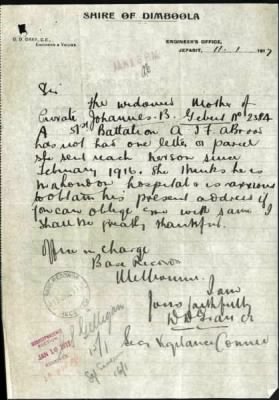 SHIRE OF DIMBOOLA
D. D. GRAY, C.E.,
ENGINEER & VALUER.
ENGINEER'S OFFICE,
JEPARIT, 11.1.1917
Sir
The widowed Mother of
Private Johannes. B. Gebert No 2384
A 51st Battalion A I F abroad
has not had one letter or parcel
she sent reach her son since
February 1916. She thinks he is
in a London hospital & is anxious
to obtain his present address if
you can oblige me with same I
shall be greatly thankful.
Officer in Charge
Base Records
Melbourne.
I am
Yours faithfully
D D Gray
Secy Vigilance Comee
BASE RECORDS
JAN 1917